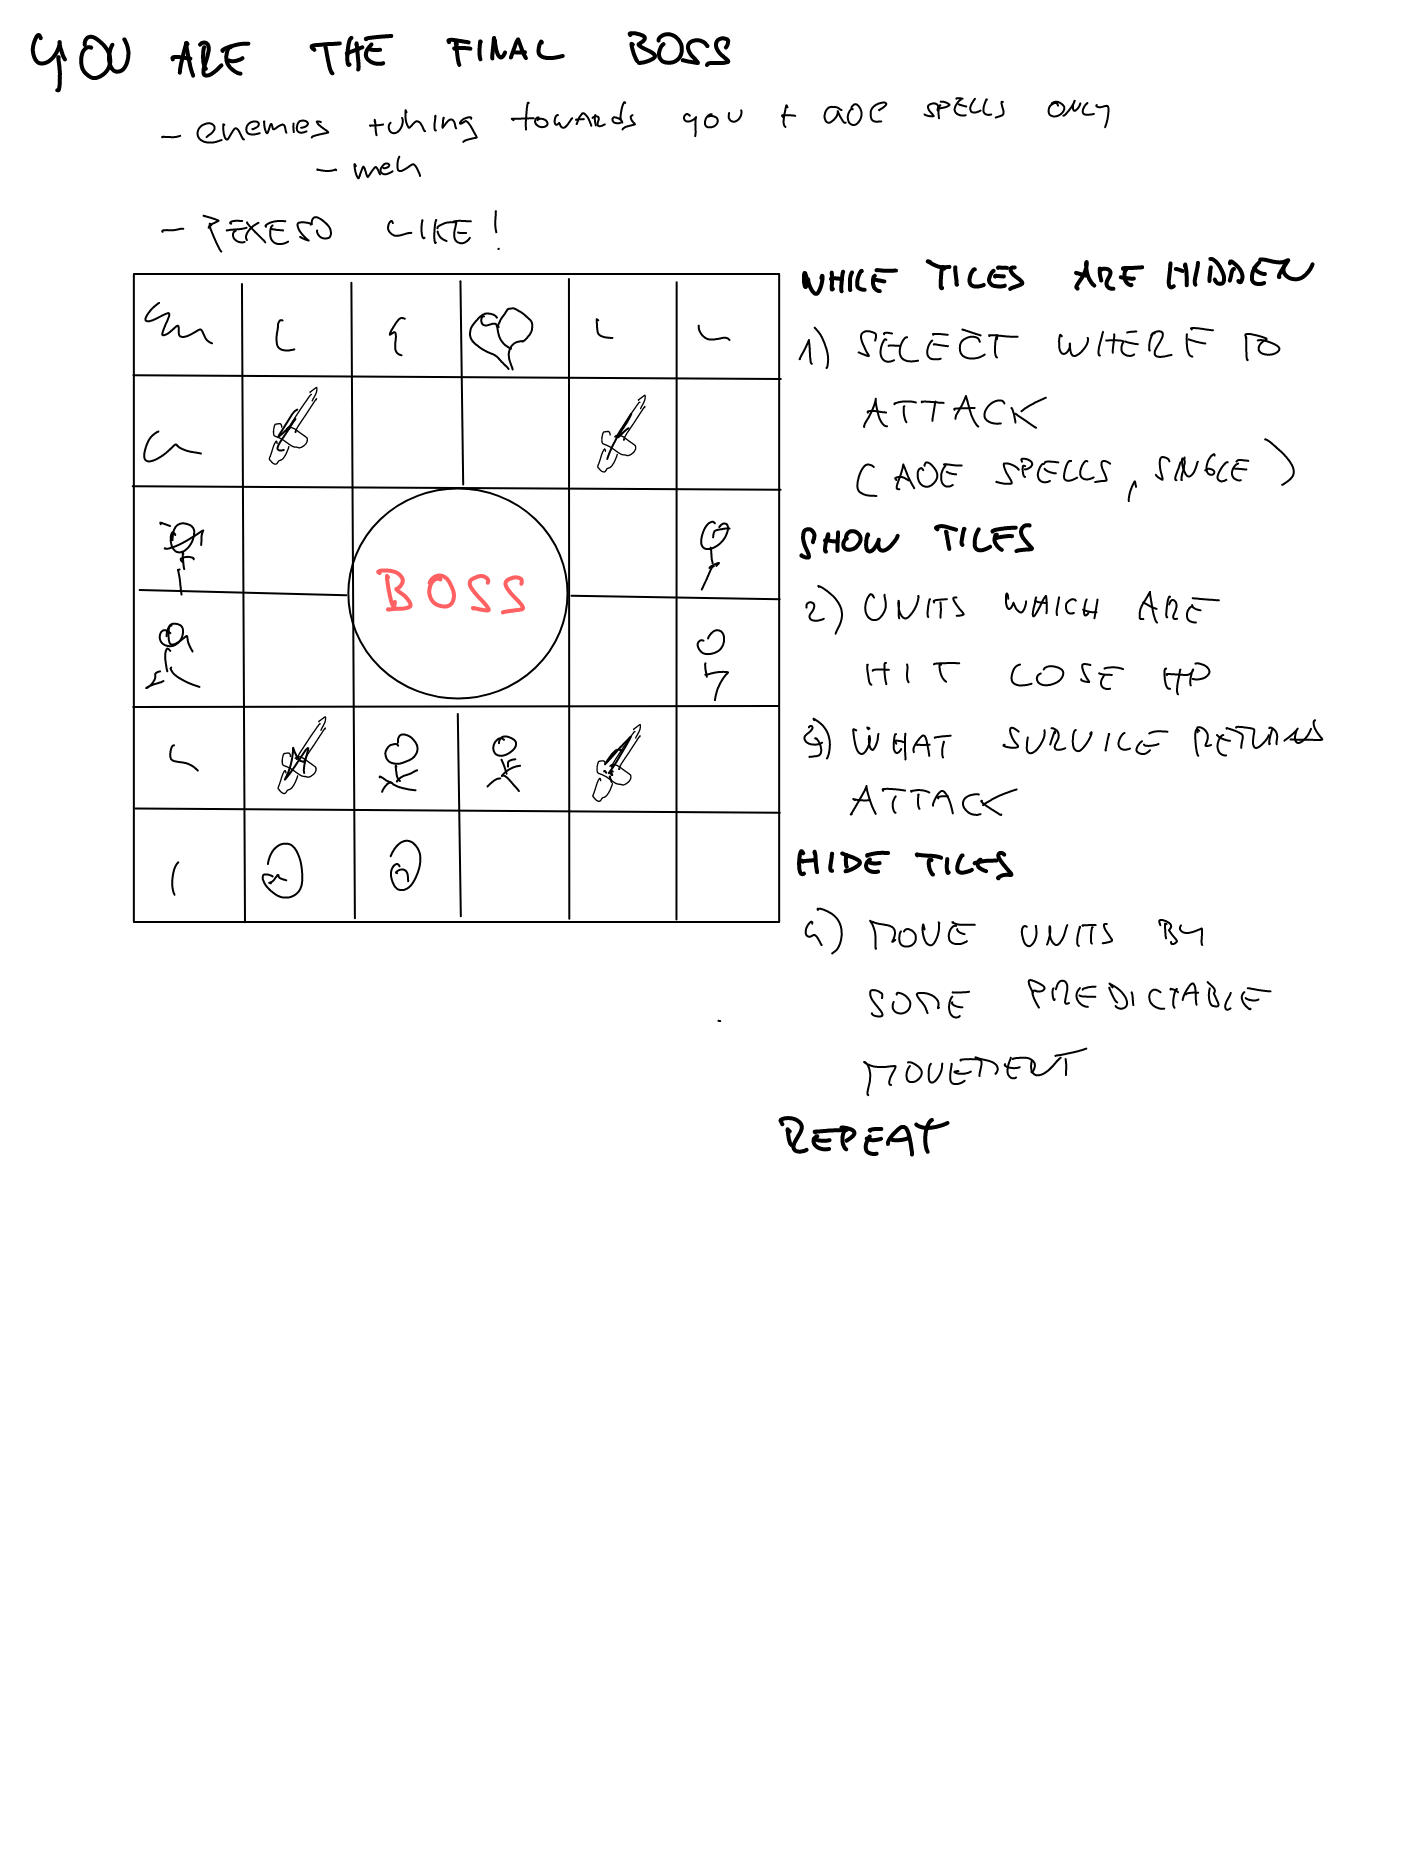 YOU ARE THE FINAL BOSS
- enemies tuhing towards you + aoe SPELLS ONLY
- meh
- PEXESO LIKE!
BOSS
WHILE TILES ARE HIDDEN
1) SELECT WHERE TO
ATTACK
(AOE SPELLS, SINGLE)
SHOW TILES
2) UNITS WHICH ARE
HIT LOSE HP
3) WHAT SURVICE RETURNS
ATTACK
HIDE TILES
4) MOVE UNITS BY
SOME PREDICTABLE
MOVEMENT
REPEAT